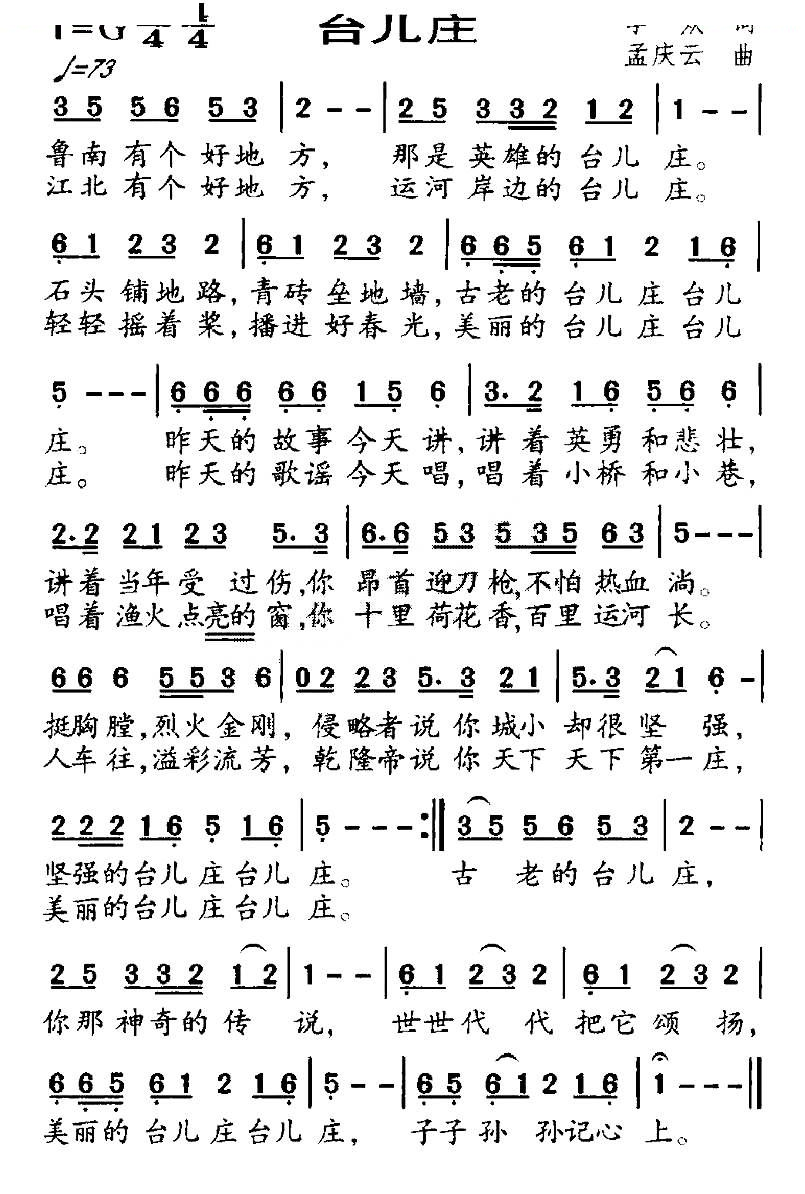 台儿庄
♩=73
孟庆云 曲
3 5 5 6 5 3 | 2 - - | 2 5 3 3 2 1 2 | 1 - - |
鲁南有个好地方， 那是英雄的台儿庄。
江北有个好地方， 运河岸边的台儿庄。
6 1 2 3 2 | 6 1 2 3 2 | 6 6 5 6 1 2 1 6 |
石头铺地路，青砖垒地墙，古老的台儿庄台儿
轻轻摇着桨，播进好春光，美丽的台儿庄台儿
5 - - - | 6 6 6 6 6 1 5 6 | 3. 2 1 6 5 6 6 |
庄。 昨天的故事今天讲，讲着英勇和悲壮，
庄。 昨天的歌谣今天唱，唱着小桥和小巷，
2. 2 2 1 2 3 5. 3 | 6. 6 5 3 5 3 5 6 3 | 5 - - - |
讲着当年受过伤，你昂首迎刀枪，不怕热血淌。
唱着渔火点亮的窗，你十里荷花香，百里运河长。
6 6 6 5 5 3 6 | 0 2 2 3 5. 3 2 1 | 5. 3 2 1 6 - |
挺胸膛，烈火金刚，侵略者说你城小却很坚强，
人车往，溢彩流芳，乾隆帝说你天下天下第一庄，
2 2 2 1 6 5 1 6 | 5 - - - :| 3 5 5 6 5 3 | 2 - - |
坚强的台儿庄台儿庄。 古老的台儿庄，
美丽的台儿庄台儿庄。
2 5 3 3 2 1 2 | 1 - - | 6 1 2 3 2 | 6 1 2 3 2 |
你那神奇的传说， 世世代代把它颂扬，
6 6 5 6 1 2 1 6 | 5 - - | 6 5 6 1 2 1 6 | 1 - - - ‖
美丽的台儿庄台儿庄， 子子孙孙记心上。